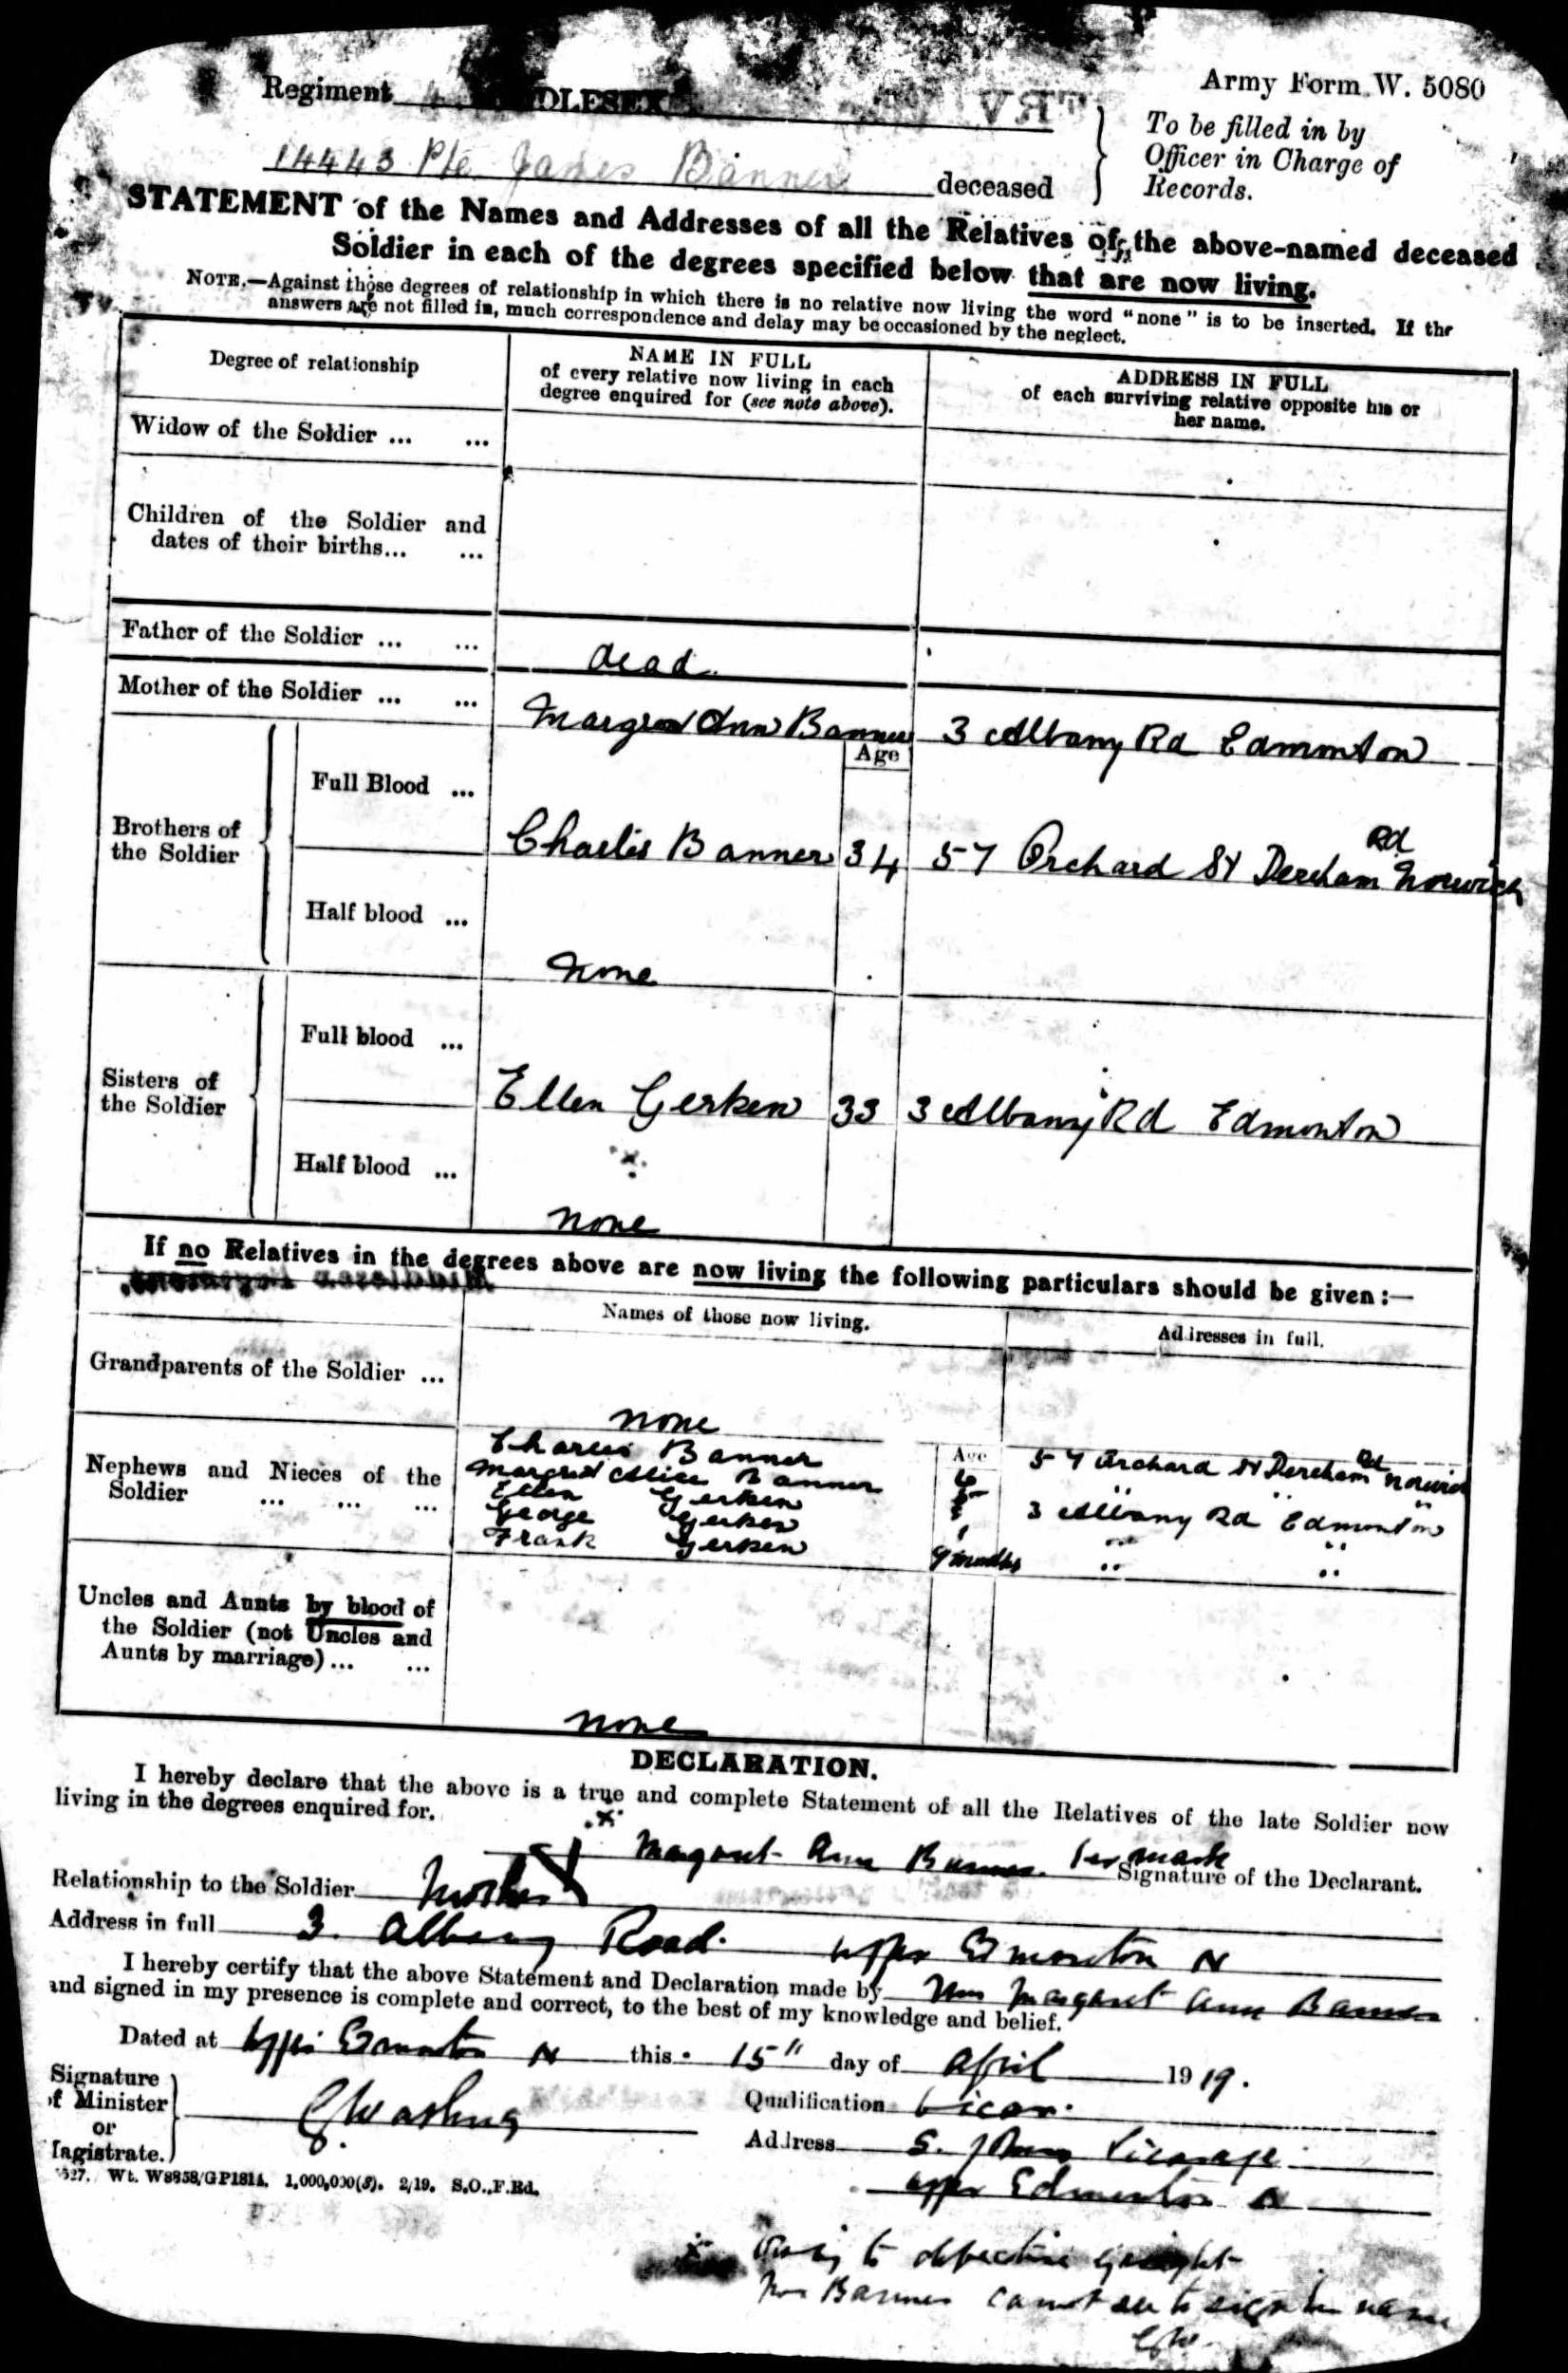 Army Form W. 5080
Regiment 4 DLESEX
To be filled in by
Officer in Charge of
Records.
14443 Pte James Banner deceased
STATEMENT of the Names and Addresses of all the Relatives of the above-named deceased
Soldier in each of the degrees specified below that are now living.
NOTE.—Against those degrees of relationship in which there is no relative now living the word "none" is to be inserted. If the
answers are not filled in, much correspondence and delay may be occasioned by the neglect.
Degree of relationship
NAME IN FULL
of every relative now living in each
degree enquired for (see note above).
ADDRESS IN FULL
of each surviving relative opposite his or
her name.
Widow of the Soldier ... ...
Children of the Soldier and
dates of their births... ...
Father of the Soldier ... ... dead.
Mother of the Soldier ... ... Margret Ann Banner 3 Albany Rd Edmonton
Age
Brothers of
the Soldier
Full Blood ... Charles Banner 34 57 Orchard St Dereham Rd Norwich
Half blood ... None
Sisters of
the Soldier
Full blood ... Ellen Gerken 33 3 Albany Rd Edmonton
Half blood ... none
If no Relatives in the degrees above are now living the following particulars should be given:—
Names of those now living.
Addresses in full.
Grandparents of the Soldier ... none
Nephews and Nieces of the
Soldier ... ... ...
Age
Charles Banner 57 Orchard St Dereham Rd Norwich
Margret Alice Banner " " "
Ellen Gerken 3 Albany Rd Edmonton
George Gerken " "
Frank Gerken 9 months " "
Uncles and Aunts by blood of
the Soldier (not Uncles and
Aunts by marriage)... ... none
DECLARATION.
I hereby declare that the above is a true and complete Statement of all the Relatives of the late Soldier now
living in the degrees enquired for.
x Margaret Ann Banner. her mark Signature of the Declarant.
Relationship to the Soldier Mother X
Address in full 3. Albany Road. Upper Edmonton N
I hereby certify that the above Statement and Declaration made by Mrs Margaret Ann Banner
and signed in my presence is complete and correct, to the best of my knowledge and belief.
Dated at Upper Edmonton N this 15" day of April 1919.
Signature
of Minister
or
Magistrate.
Qualification Vicar.
Address S. Johns Vicarage
Upper Edmonton N
Wt. W8858/GP1814. 1,000,000(8). 2/19. S.O.,F.Rd.
x Owing to defective eyesight
Mrs Banner cannot see to sign her name